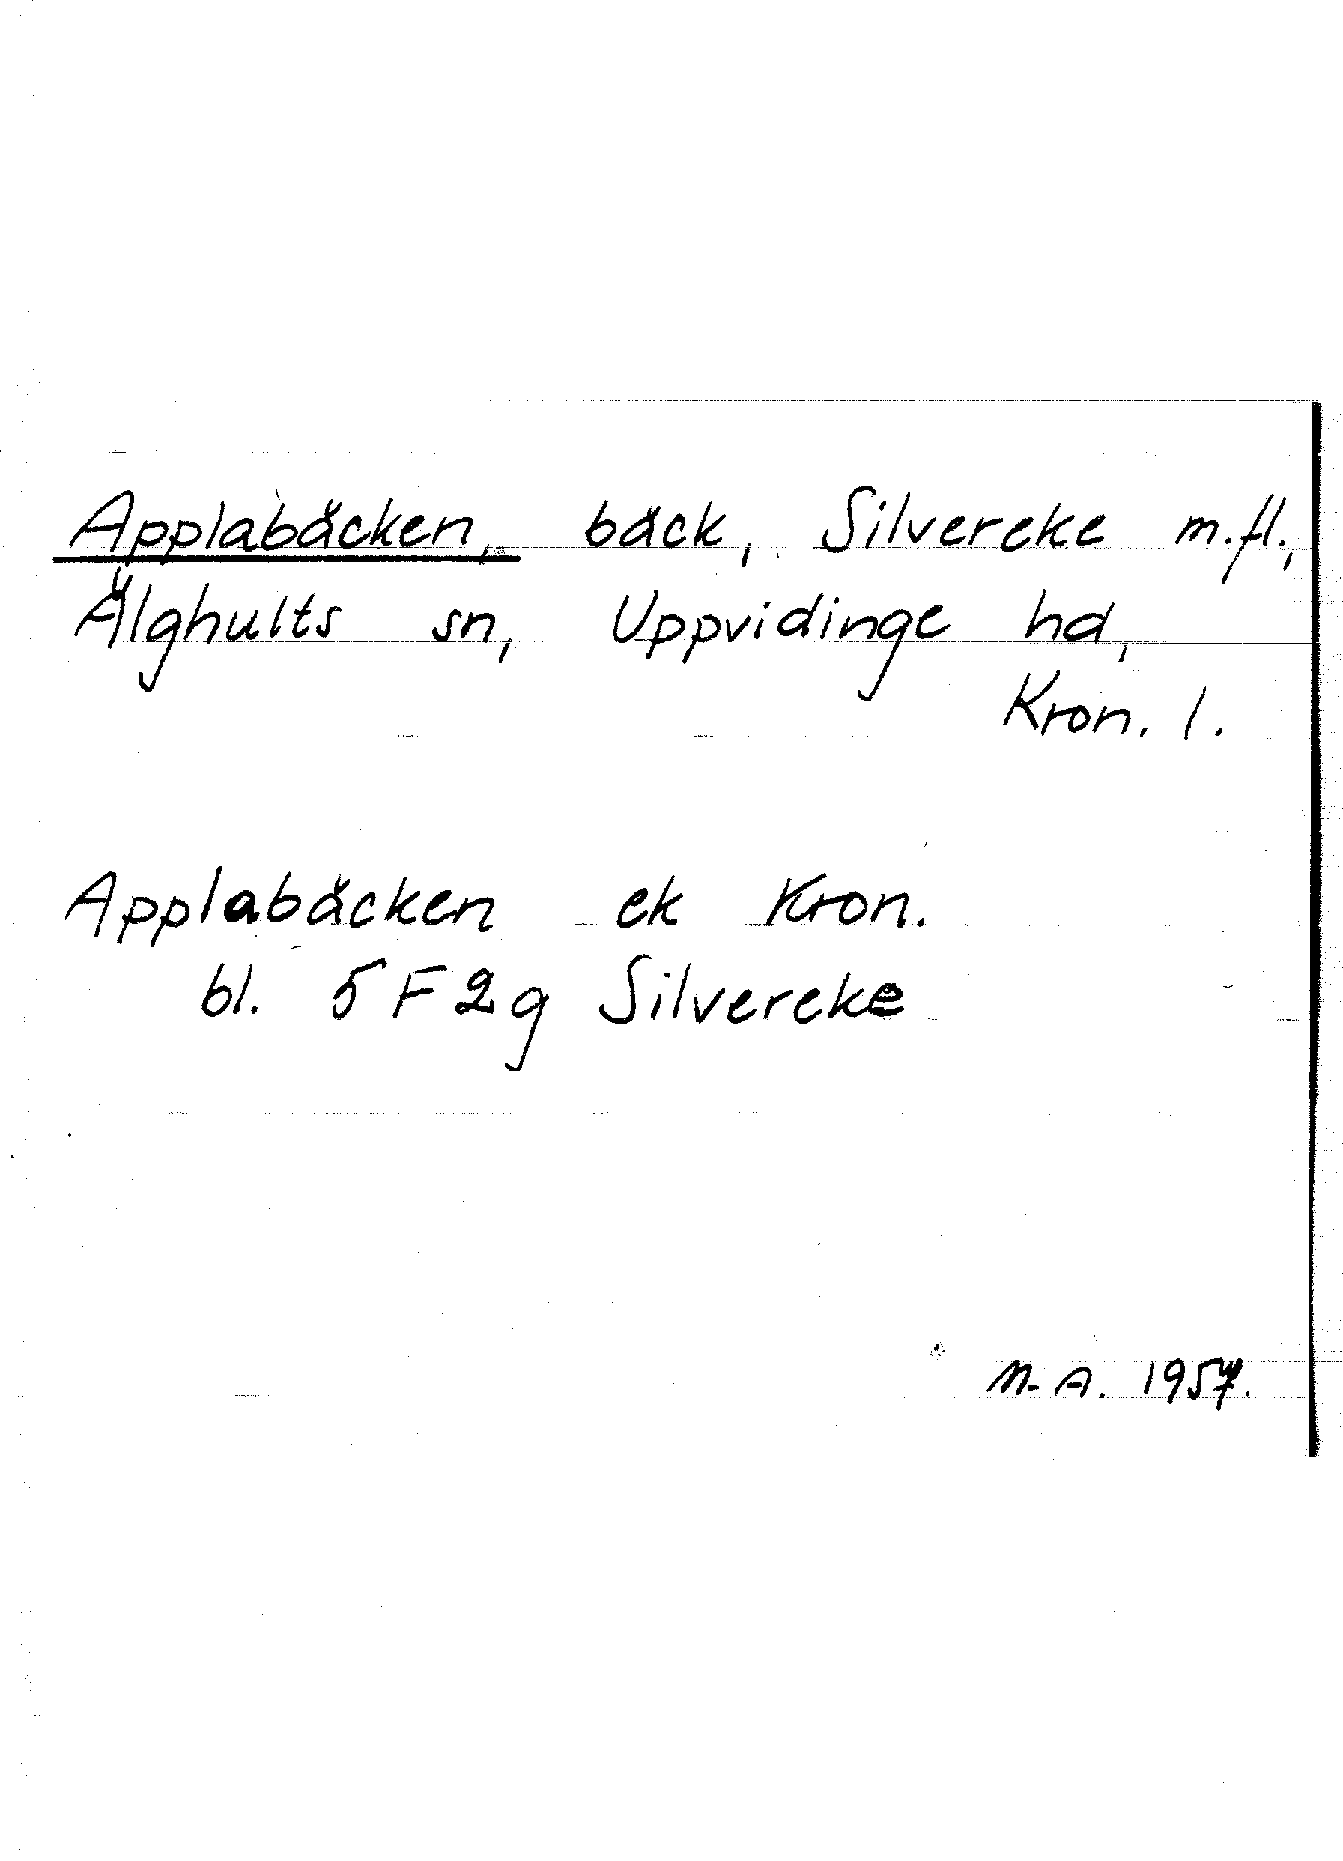 Applabäcken, bäck, Silvereke m.fl.,
Älghults sn, Uppvidinge hd,
Kron. l.
Applabäcken ek Kron.
bl. 5F2g Silvereke
M. A. 1957.